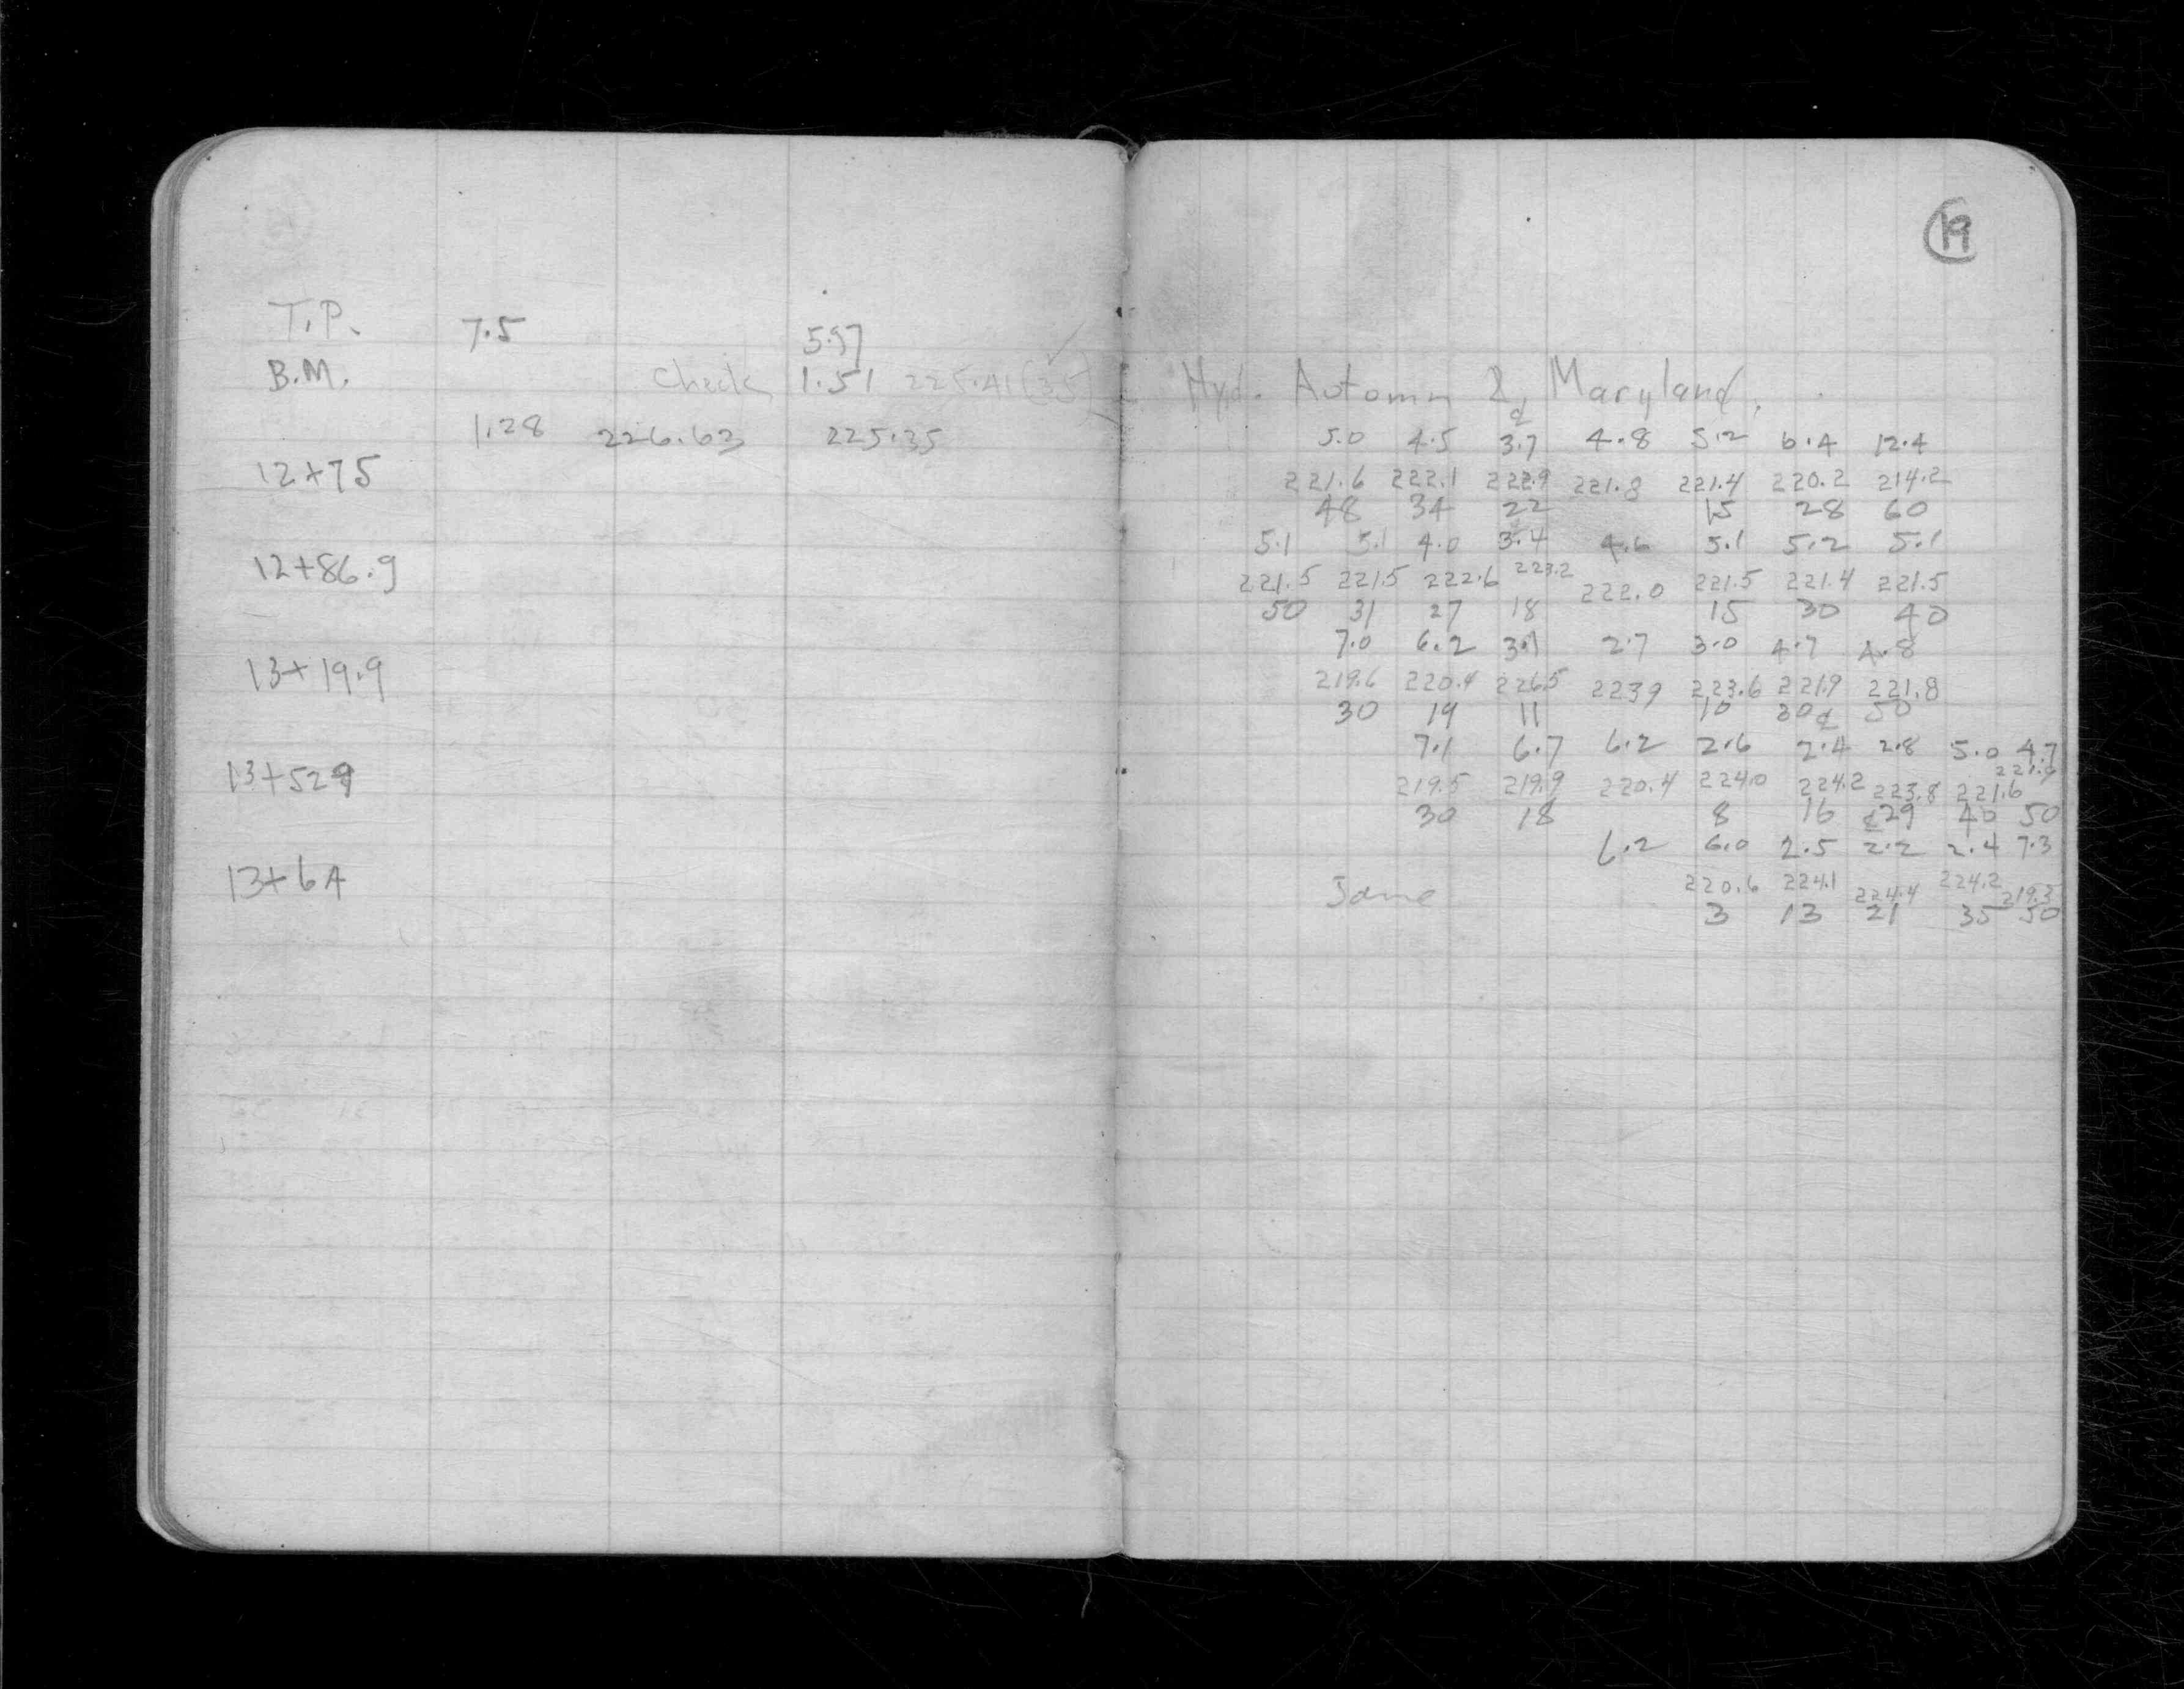 19
T.P. 7.5 5.97
B.M. Check 1.51 225.41 (35) ✓ Hyd. Autumn & Maryland.
1.28 226.63 225.35 5.0 4.5 3.7 4.8 5.2 6.4 12.4
12+75 221.6 222.1 222.9 221.8 221.4 220.2 214.2
48 34 22 15 28 60
5.1 5.1 4.0 3.4 4.6 5.1 5.2 5.1
12+86.9 221.5 221.5 222.6 223.2 222.0 221.5 221.4 221.5
50 31 27 18 15 30 40
7.0 6.2 3.1 2.7 3.0 4.7 4.8
13+19.9 219.6 220.4 226.5 223.9 223.6 221.9 221.8
30 19 11 10 30 ¢ 50
7.1 6.7 6.2 2.6 2.4 2.8 5.0 4.7
13+529 219.5 219.9 220.4 224.0 224.2 223.8 221.6 221.9
30 18 8 16 ¢29 40 50
6.2 6.0 2.5 2.2 2.4 7.3
13+64 Same 220.6 224.1 224.4 224.2 219.3
3 13 21 35 50